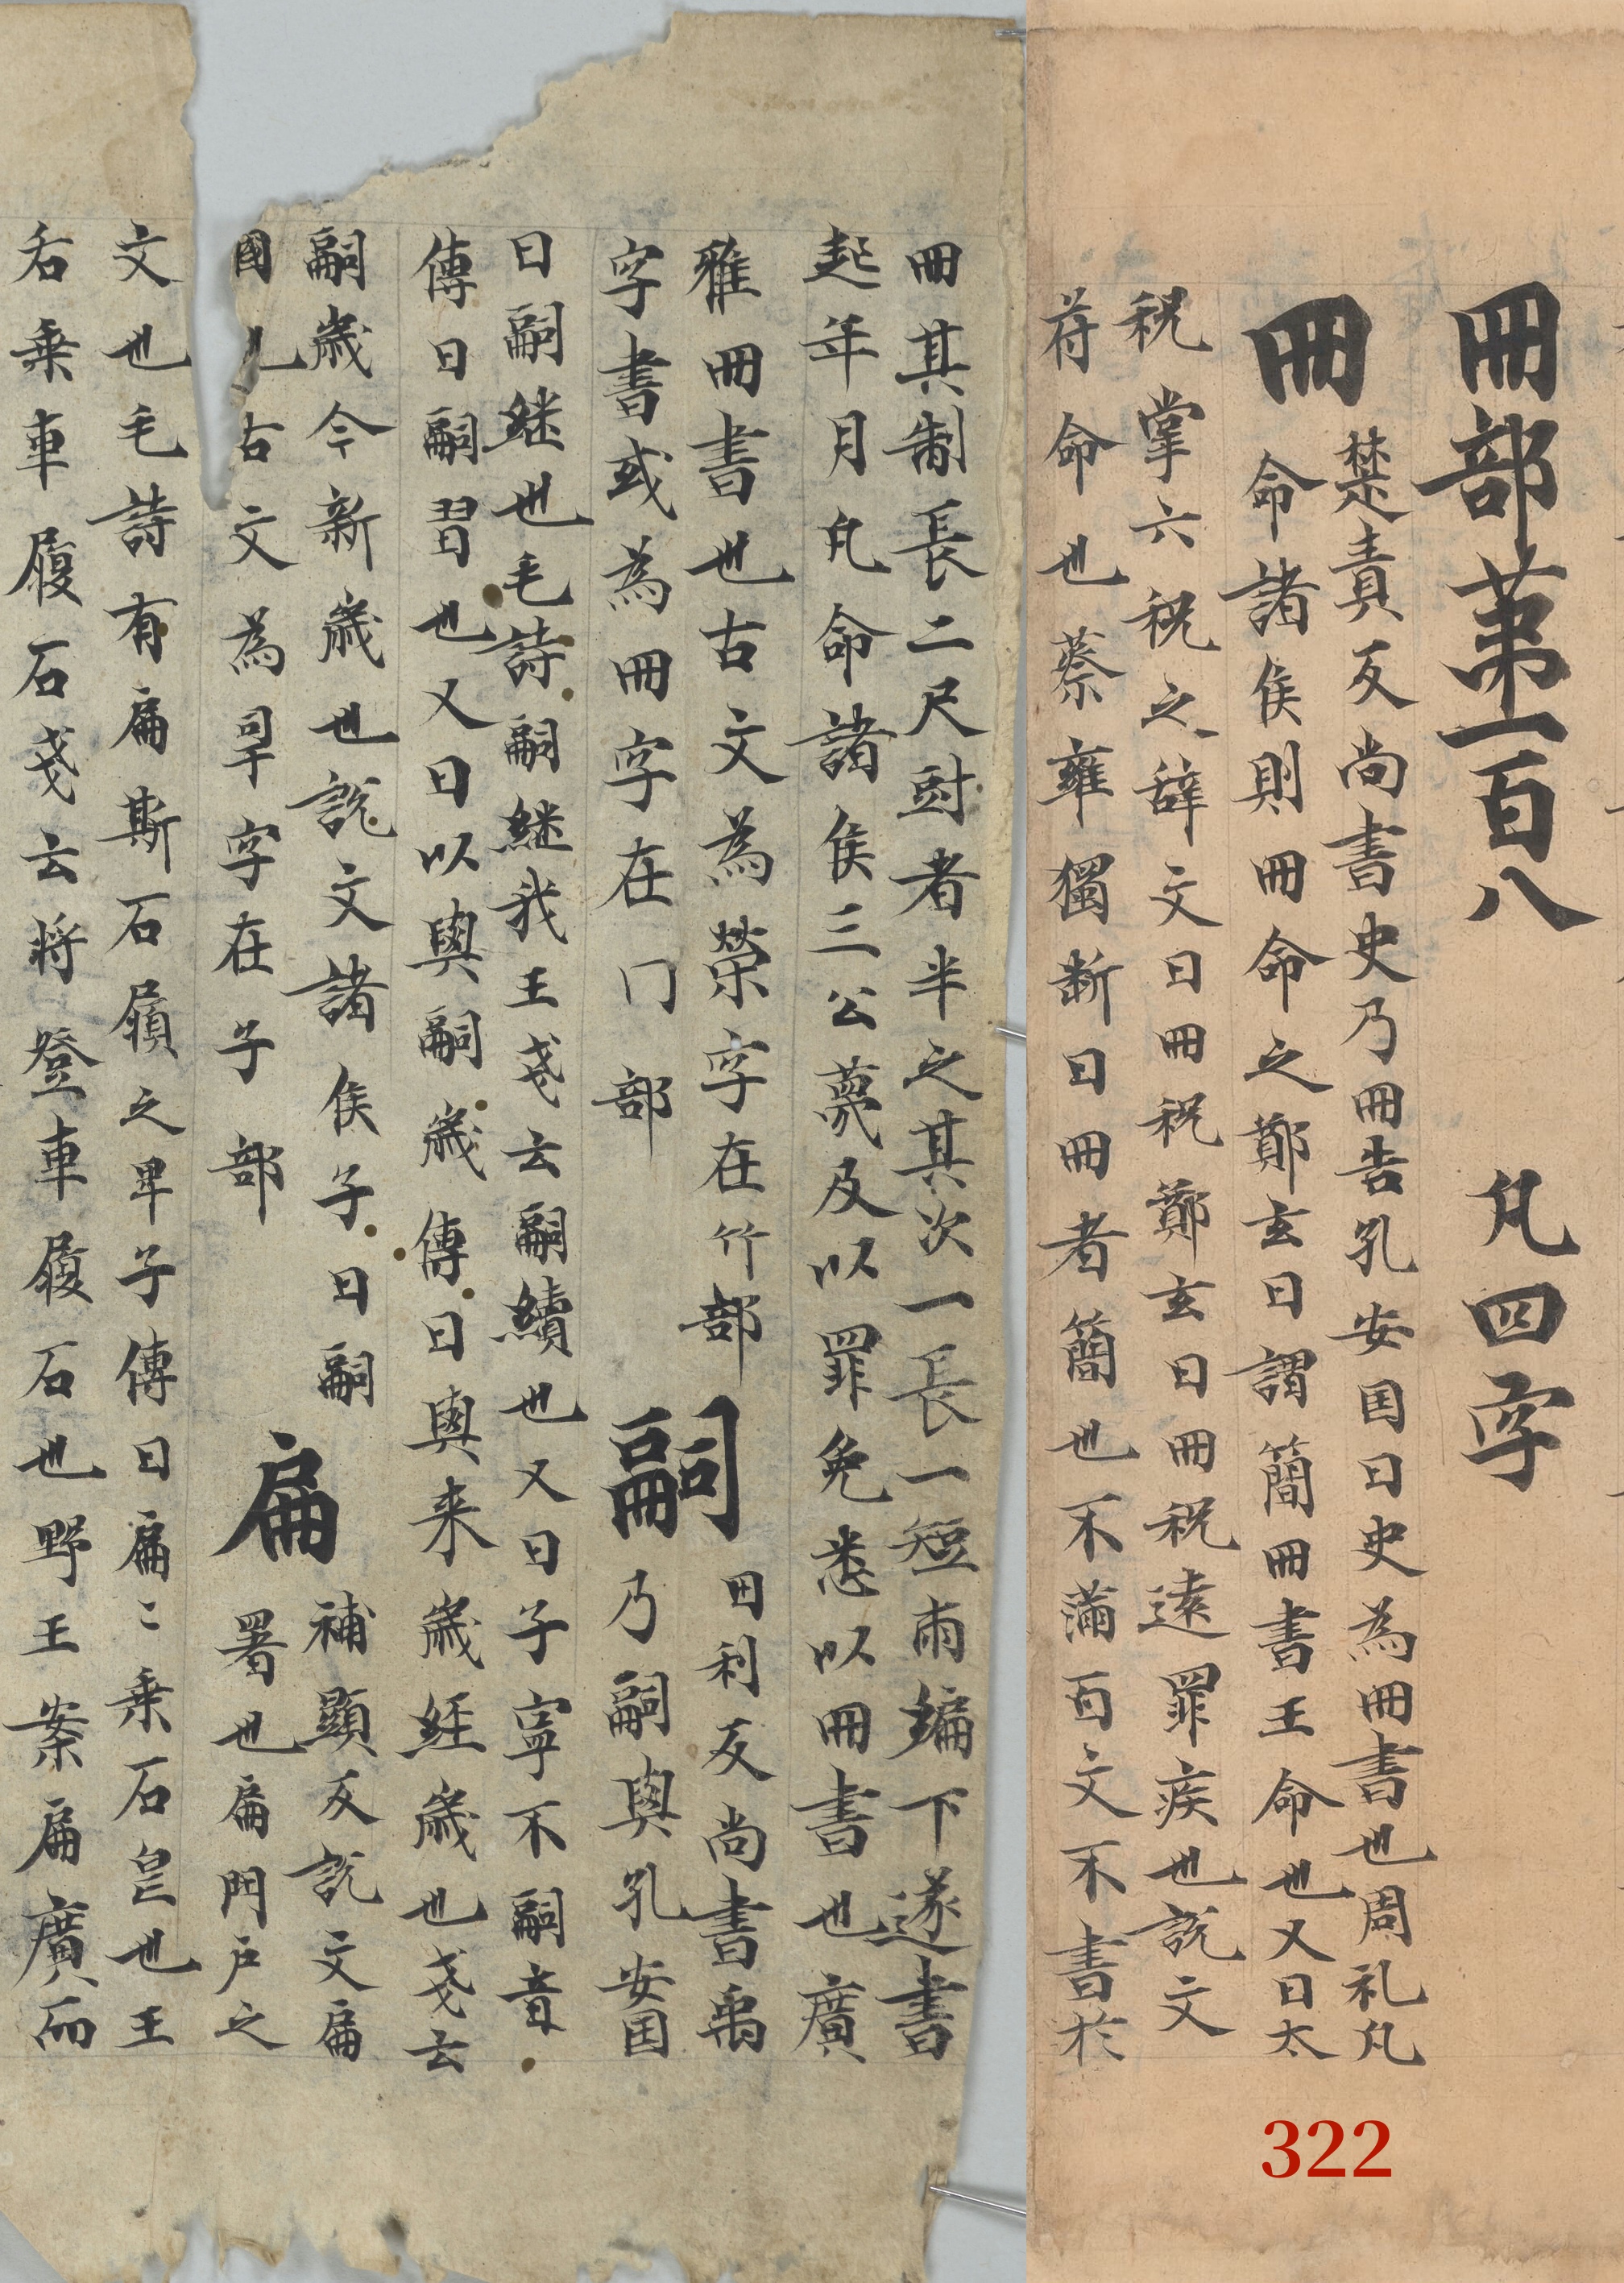 冊部苐一百八　凡四字
楚責反尚書史乃冊告孔安国曰史為冊書也周礼凡
冊命諸侯則冊命之鄭玄曰謂簡冊書王命也又曰太
祝掌六祝之辝文曰冊祝鄭玄曰冊祝遠罪疾也説文
苻命也蔡雍獨断曰冊者簡也不滿百文不書於
冊其制長二尺尌者半之其次一長一短兩編下遂書
起年月凡命諸侯三公薨及以罪免悉以冊書也廣
雅冊書也古文為䇿字在竹部
字書或為𠕁字在门部
嗣
囙利反尚書禹
乃嗣輿孔安国
曰嗣継也毛詩嗣継我王戔云嗣續也又曰子寧不嗣音
傳曰嗣習也又曰以輿嗣歳傳曰輿来歳経歳也戔云
嗣歳今新歳也説文諸侯子曰嗣
國也古文為孠字在子部
扁
補顯反説文扁
署也扁門户之
文也毛詩有扁斯石履之卑子傳曰扁〻乗石皃也王
后乗車履石戔云将登車履石也野王案扁廣而
322